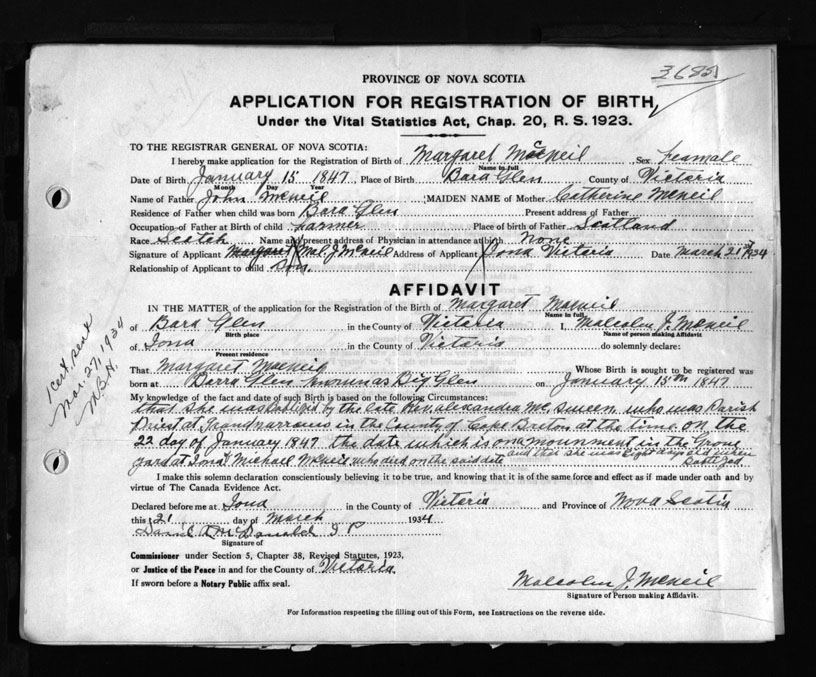 3685
PROVINCE OF NOVA SCOTIA
APPLICATION FOR REGISTRATION OF BIRTH,
Under the Vital Statistics Act, Chap. 20, R. S. 1923.
TO THE REGISTRAR GENERAL OF NOVA SCOTIA:
I hereby make application for the Registration of Birth of Margaret McNeil Sex Feamale
Name in full
Date of Birth January 15 1847 Place of Birth Bara Glen County of Victoria
Month Day Year
Name of Father John McNeil MAIDEN NAME of Mother Catherine McNeil
Residence of Father when child was born Bara Glen Present address of Father
Occupation of Father at Birth of child farmer Place of birth of Father Scotland
Race Scotch Name and present address of Physician in attendance at birth None
Signature of Applicant Margaret Mal. J. McNeil Address of Applicant Iona Victoria Date March 21st 1934
Relationship of Applicant to child Son.
AFFIDAVIT
IN THE MATTER of the application for the Registration of the Birth of Margaret MacNeil
Name in full
of Bara Glen in the County of Victoria I, Malcolm J. McNeil
Birth place Name of person making Affidavit
of Iona in the County of Victoria do solemnly declare:
Present residence
That Margaret MacNeil Whose Birth is sought to be registered was
born at Barra Glen known as Big Glen on January 15th 1847
My knowledge of the fact and date of such Birth is based on the following Circumstances:
that she was Babtized by the late Rev. alexandra Mc Sween who was Parish
Priest at Grand narrows in the County of Cape Breton at the time on the
22 day of January 1847 the date which is on a mounment in the Grave
yard at Iona Michall McNeil who died on the said date and that she was eight days old when
Babtized
I make this solemn declaration conscientiously believing it to be true, and knowing that it is of the same force and effect as if made under oath and by
virtue of The Canada Evidence Act.
Declared before me at Iona in the County of Victoria and Province of Nova Scotia
this 21 day of March 1934
McDonald J P
Signature of
Commissioner under Section 5, Chapter 38, Revised Statutes, 1923,
or Justice of the Peace in and for the County of Victoria
If sworn before a Notary Public affix seal.
Malcolm J. McNeil
Signature of Person making Affidavit.
For Information respecting the filling out of this Form, see Instructions on the reverse side.
1 cert. sent
Mar. 27, 1934
M.B.H.